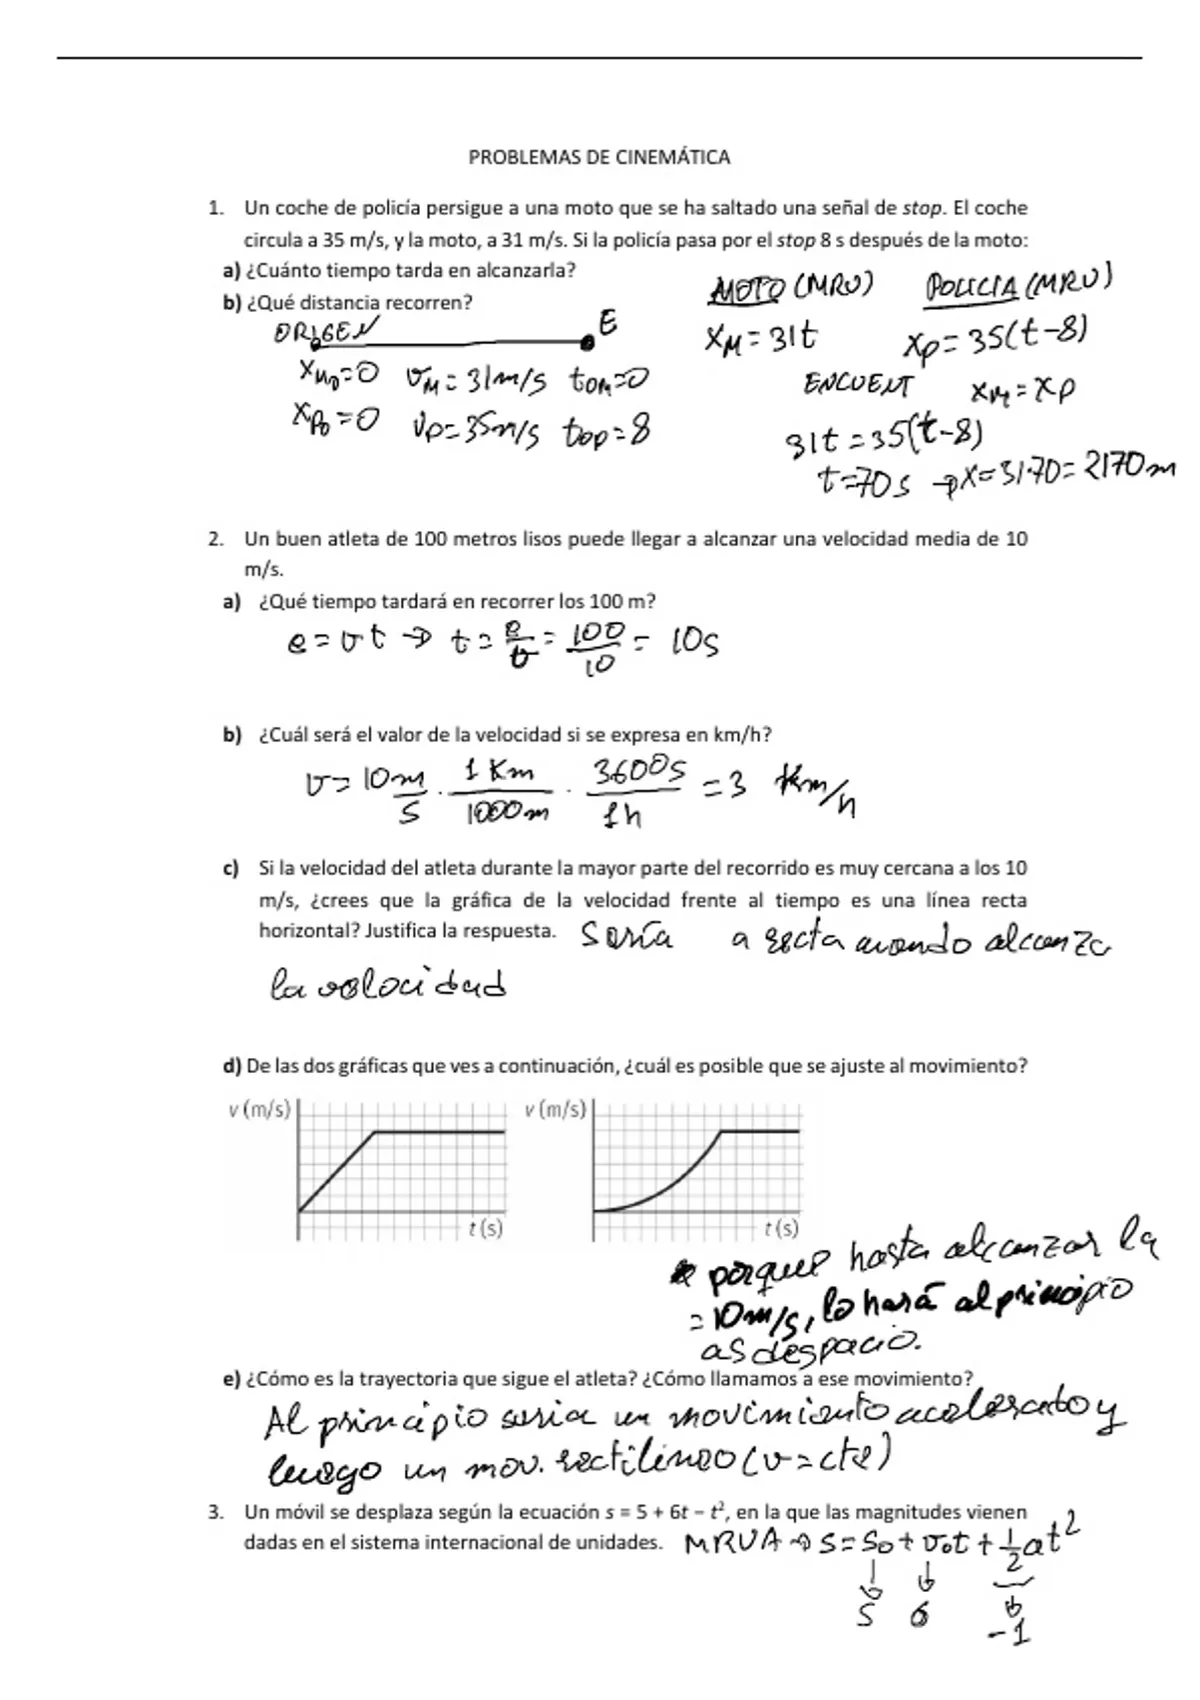 PROBLEMAS DE CINEMÁTICA
1. Un coche de policía persigue a una moto que se ha saltado una señal de stop. El coche
circula a 35 m/s, y la moto, a 31 m/s. Si la policía pasa por el stop 8 s después de la moto:
a) ¿Cuánto tiempo tarda en alcanzarla?
b) ¿Qué distancia recorren?
MOTO (MRU) POLICIA (MRU)
ORIGEN E
x_M = 31t x_P = 35(t-8)
x_M0 = 0 v_M = 31m/s t_0M = 0
ENCUENT x_M = x_P
x_P0 = 0 v_P = 35m/s t_0P = 8
31t = 35(t-8)
t = 70s → x = 31·70 = 2170m
2. Un buen atleta de 100 metros lisos puede llegar a alcanzar una velocidad media de 10
m/s.
a) ¿Qué tiempo tardará en recorrer los 100 m?
e = vt → t = e/v = 100/10 = 10s
b) ¿Cuál será el valor de la velocidad si se expresa en km/h?
v = 10 m/s · 1 Km/1000m · 3600s/1h = 3 Km/h
c) Si la velocidad del atleta durante la mayor parte del recorrido es muy cercana a los 10
m/s, ¿crees que la gráfica de la velocidad frente al tiempo es una línea recta
horizontal? Justifica la respuesta. Sería a recta cuando alcanza
la velocidad
d) De las dos gráficas que ves a continuación, ¿cuál es posible que se ajuste al movimiento?
v (m/s) v (m/s)
t (s) t (s)
porque hasta alcanzar la
= 10m/s, lo hará al principio
as despacio.
e) ¿Cómo es la trayectoria que sigue el atleta? ¿Cómo llamamos a ese movimiento?
Al principio seria un movimiento acelerado y
luego un mov. rectilíneo (v = cte)
3. Un móvil se desplaza según la ecuación s = 5 + 6t – t², en la que las magnitudes vienen
dadas en el sistema internacional de unidades. MRUA → s = s₀ + v₀t + 1/2 at²
5 6 -1